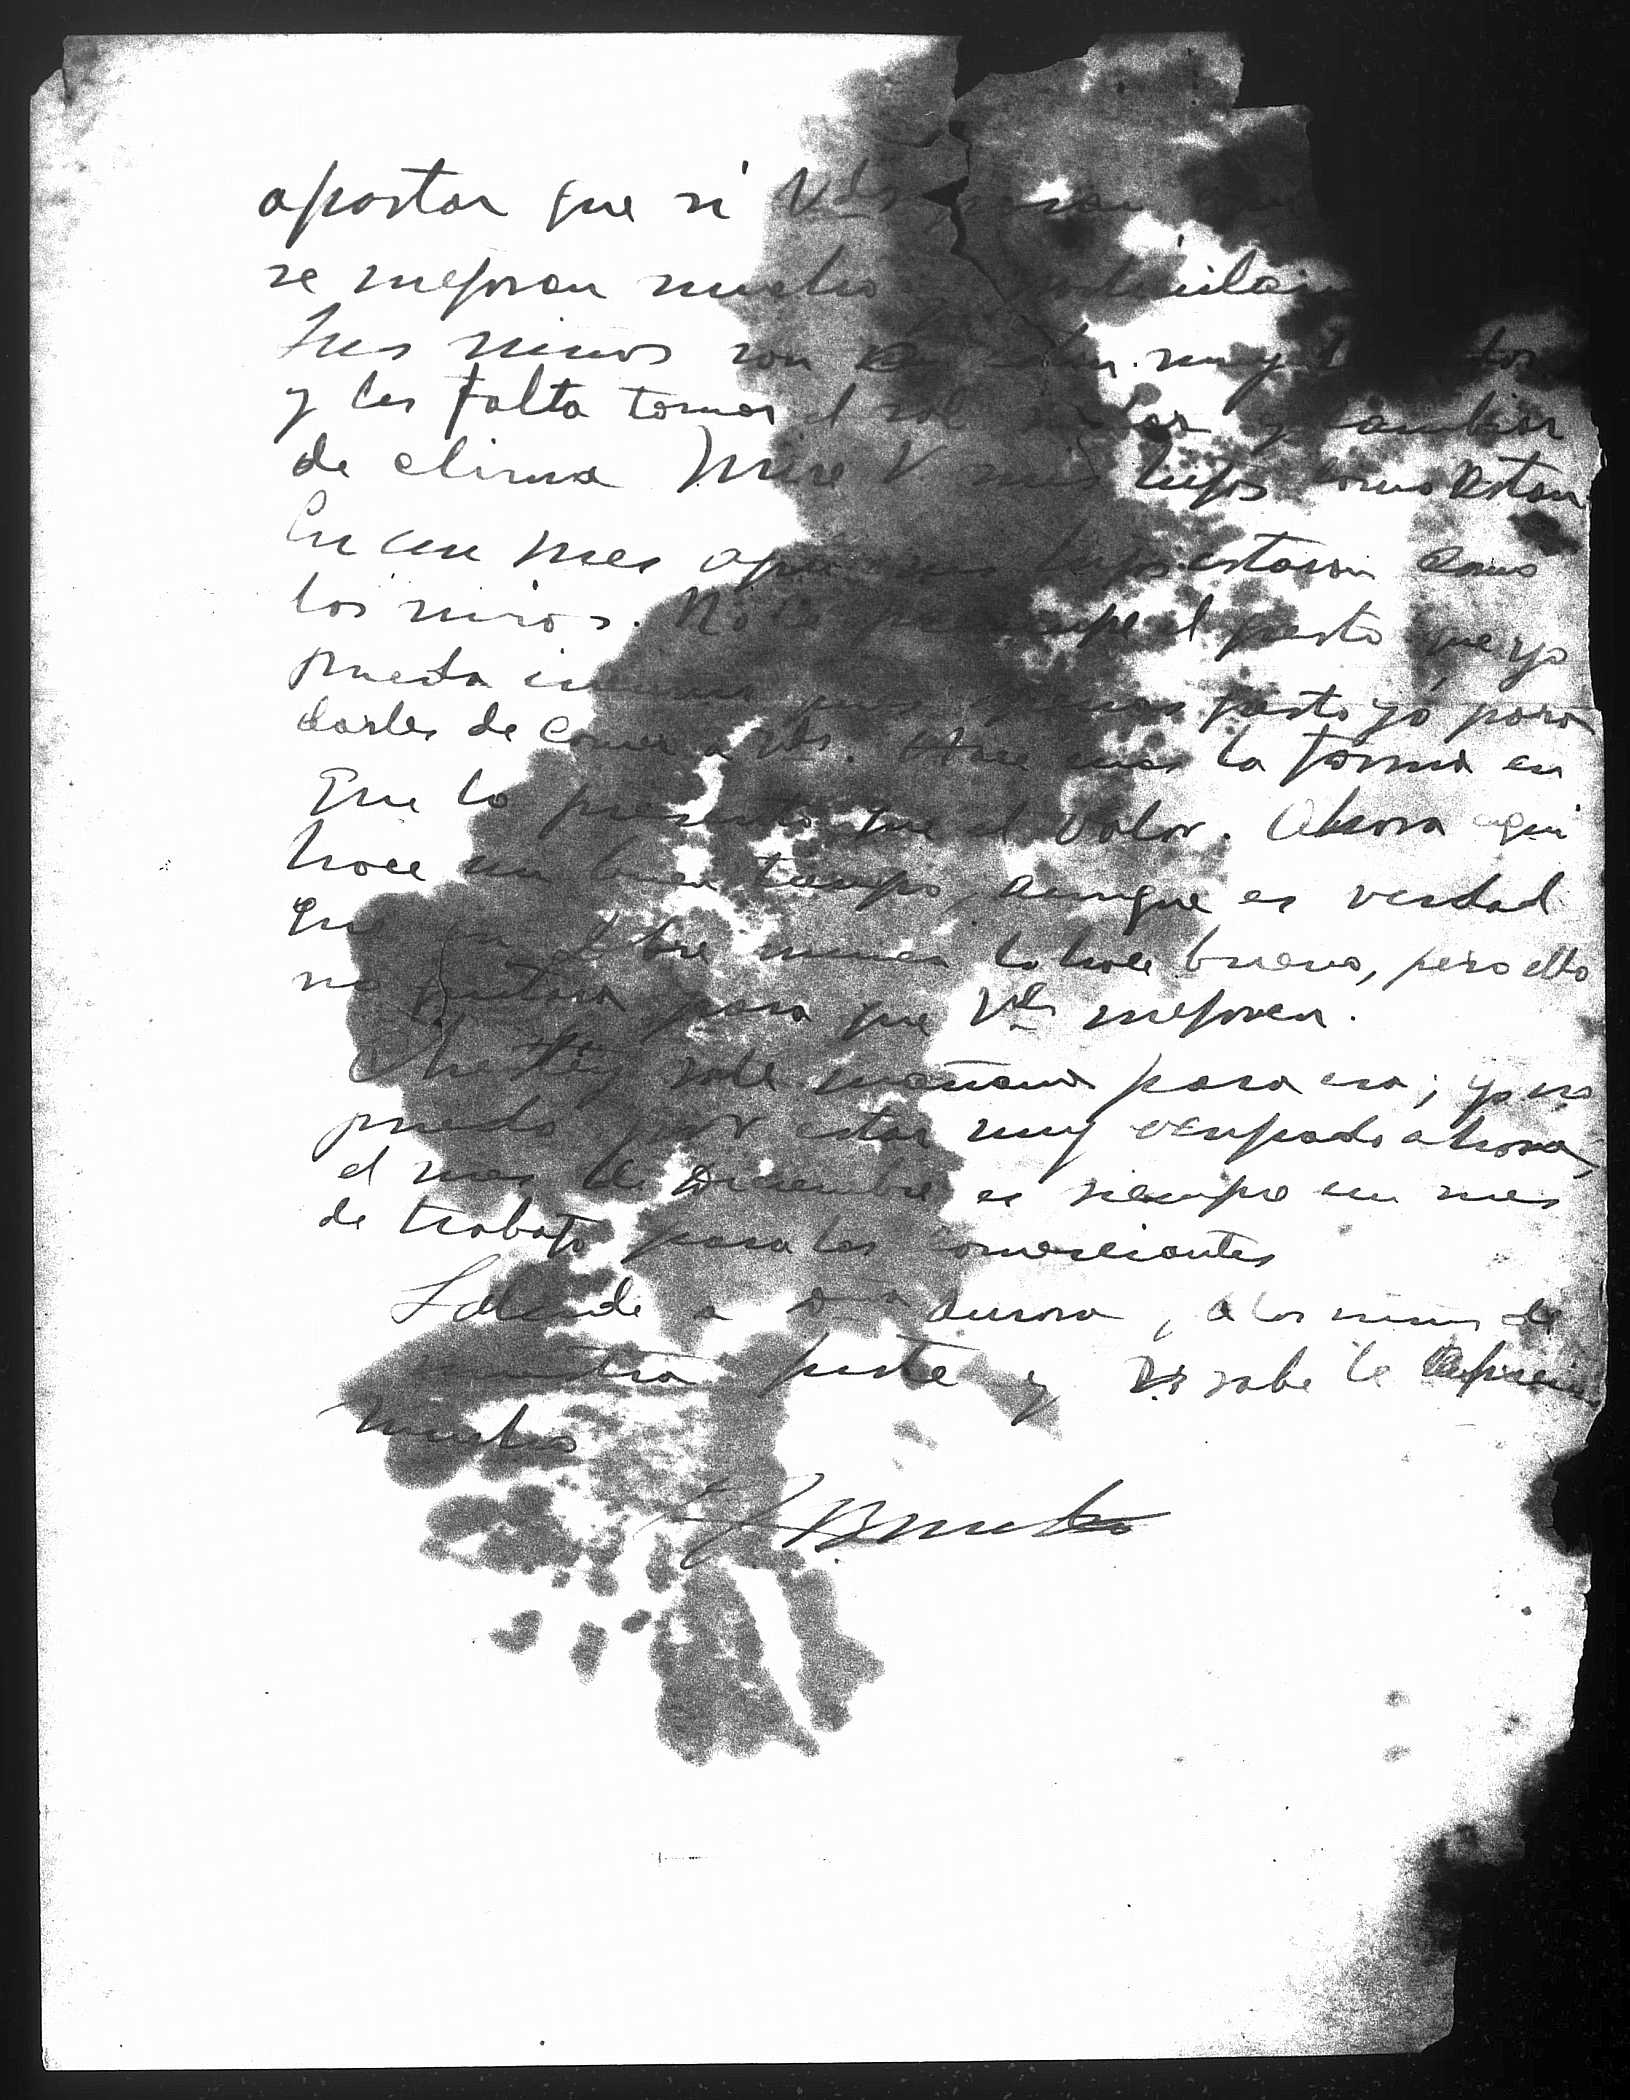 apostar que si Vds pasan
se mejoran mucho y particularm
sus niños son muy
y les falta tomar el sol y cambiar
de clima Mire V. mis hijos como estan
En un mes aqui sus hijos estarian como
los mios. No le preocupe el gasto que yo
pueda pues menos gasto yó para
darles de comer a Vds. Mire mas la forma en
Que lo presento que el valor. Ahora aqui
hace un buen tiempo, aunque es verdad
Que en nunca lo hace bueno, pero ello
no quitara para que Vds mejoren.
sale mañana para esa; yo no
puedo por estar muy ocupado ahora,
el mes de Diciembre es siempre un mes
de trabajo para los comerciantes
Salude a Dña Aurora, a los niños de
nuestra parte y Vd sabe le aprecia
mucho